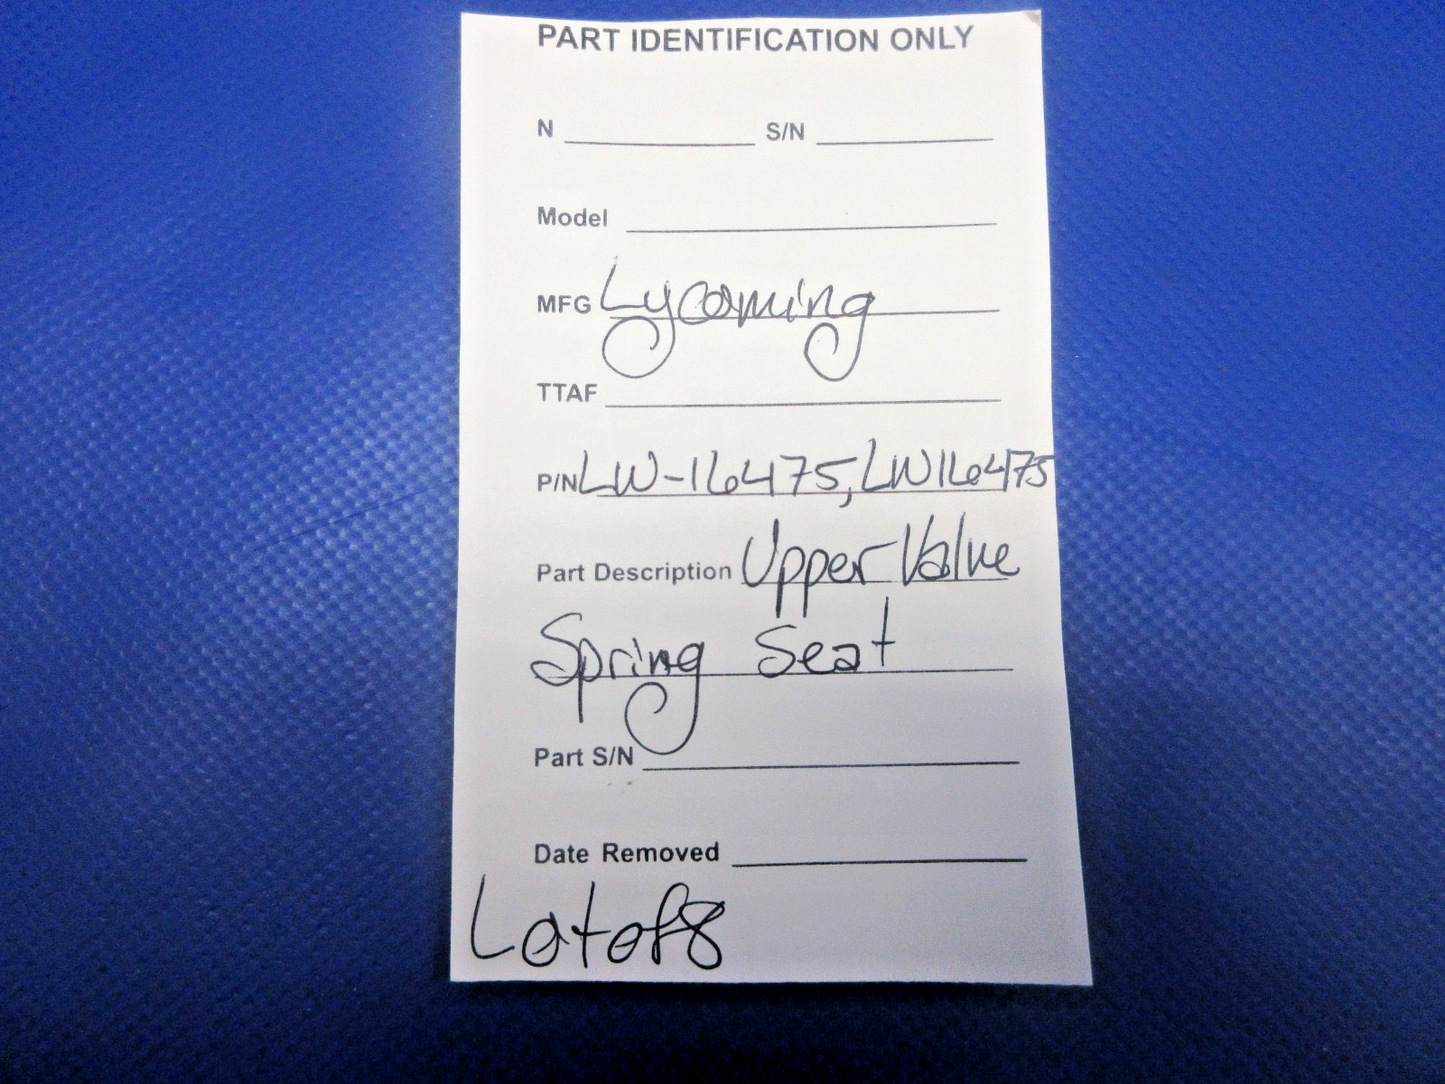 PART IDENTIFICATION ONLY
N S/N
Model
MFG Lycoming
TTAF
P/N LW-16475, LW16475
Part Description Upper Valve
Spring Seat
Part S/N
Date Removed
Lot of 8